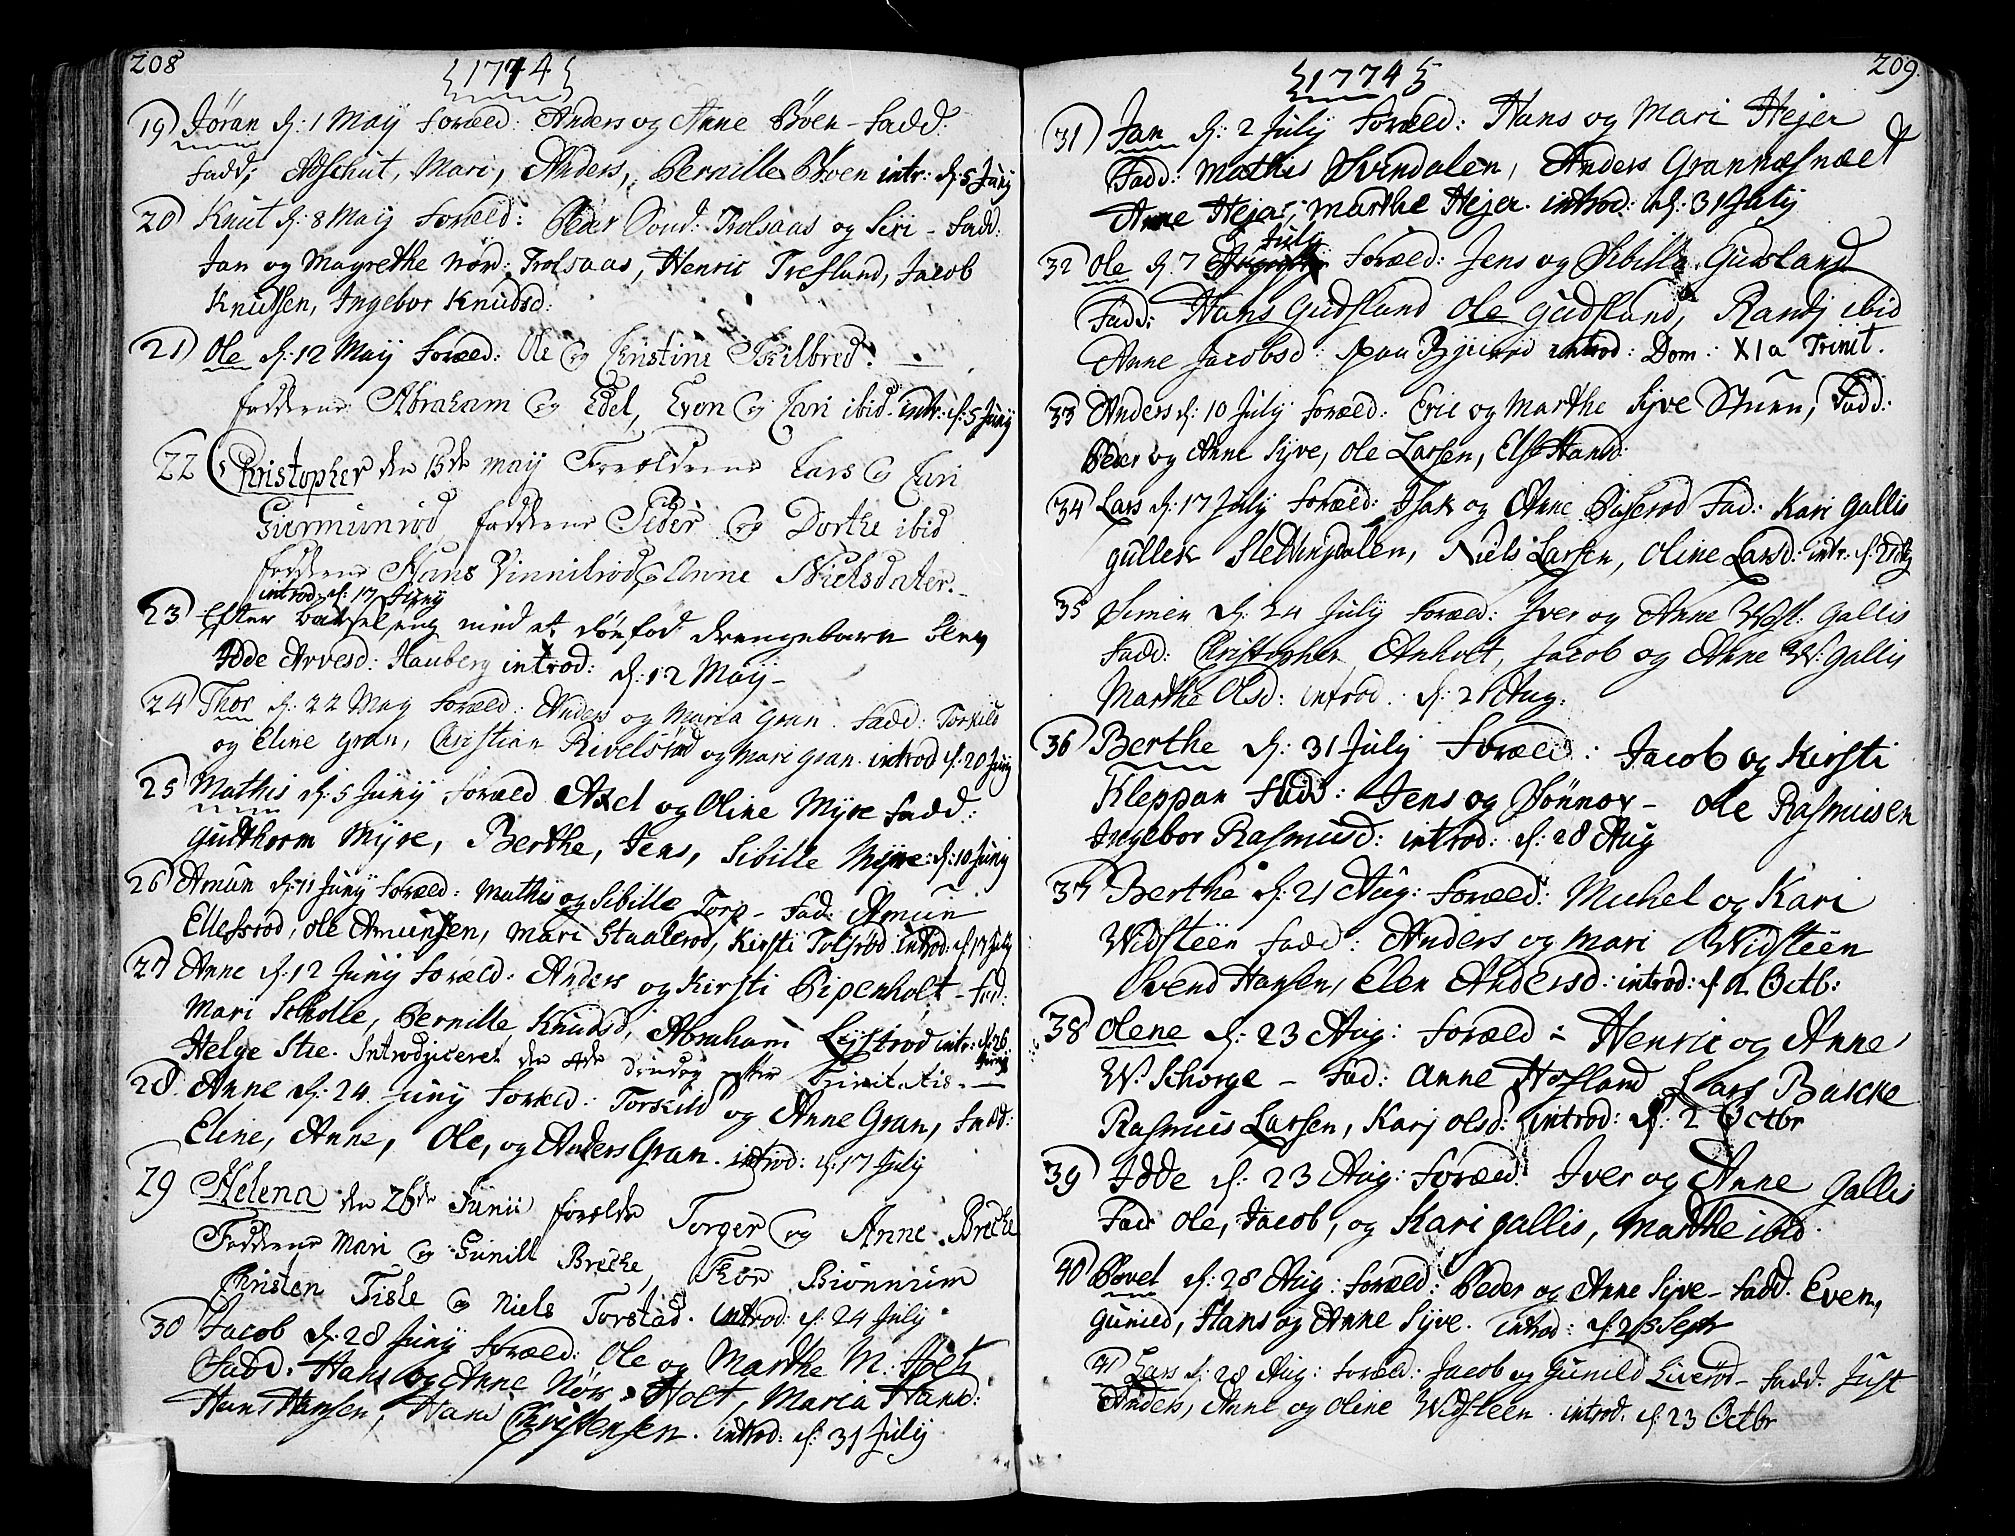 208
1774
19) Jöran d: 1 Maÿ Foræld: Anders og Anne Böen - Fadd:
Fadd: Mari, Anders, Pernille Böen intr: d: 5 Junÿ
20) Knut d: 8 Maÿ Foræld: Peder Sond: Trolsaas og Siri - Fadd:
Jan og Magrethe Nörd: Trolsaas, Henric Treslund, Jacob
Knutsen, Ingebor Knudsd:
21) Ole d: 12 Maÿ Foræld: Ole og Christine Skilbred.
Fadderne: Abraham og Edel, Even og Cari ibid. intr: d: 5 Junÿ
22 Christopher den 13de maÿ Forælderne Lars og Cari
Giermunröd, fadderne Peder og Dorthe ibid
fadderne Hans Vinnilröd og Anne Nielsdater.
introd: d: 17 Junÿ
23) Efter Barselseng med et dönfod drengebarn blev
Idde Arvesd: Hauberg introd: d: 12 Maÿ -
24) Thor d: 22 Maÿ Foræld: Anders og Maria Gran. Fadd: Torkild
og Eline Gran, Christian Rivelstad og Mari Gran. introd d: 20 Junÿ
25) Mathis d: 5 Junÿ Foræld Axel og Oline Mÿre Fadd:
Gudthorm Mÿre, Berthe, Jens, Sibille Mÿre: d: 10 Junÿ
26) Amun d: 11 Junÿ Foræld: Mathis og Sibille Torp - Fad: Amun
Ellefsröd, Ole Amunsen, Mari Staaleröd, Kirsti Tolsröd. introd: d: 17 Julÿ
27) Anne d: 12 Junÿ Foræld: Anders og Kirsti Pipenholt, - Fad:
Mari Scholle, Pernille Knudsd, Abraham Lÿströd intr: d: 26
Junÿ
Helge Stie. Introduceret den 4de Söndag efter Trinitatis. -
28. Anne d: 24. Junÿ Foræld: Torskild og Anne Gran, Fadd:
Eline, Anne, Ole, og Anders Gran. introd: d: 17 Julÿ
29 Helena den 26de Junii forældre Torger og Anne Breche
Fadderne Mari og Gunild Breche, Thor Biönnum
Christen Tisle og Niels Torstad. introd: d: 24 Julÿ
30 Jacob d: 28 Junÿ Foræld: Ole og Marthe M: Holt
Fadd: Hans og Anne Nör Holt, Maria Hansd:
Hans Hansen, Hans Christensen. introd: d: 31 Julÿ
209.
1774
31) Jan d: 2 Julÿ Foræld: Hans og Mari Hejer
Fadd: Mathis Svindalen, Anders Grannæsnæs
Anne Hejer, Marthe Hejer. introd: d: 31 Julÿ
Julÿ
32) Ole d: 7 Foræld: Jens og Sibille Gudsland
Fadd: Hans Gudslund Ole Gudslund, Randj ibid
Anne Jacobsd: paa introd: Dom: XI a Trinit.
33 Anders d: 10 Julÿ Foræld: Eric og Marthe Sÿve Stuen, Fadd:
Peder og Anne Sÿve, Ole Larsen, Else Hansd:
34 Lars d: 17 Julÿ Foræld: Isak og Anne Fad: Kari Gallis
Gullek Slettingdalen, Niels Larsen, Oline Larsd: intr: d:
35 Simen d: 24 Julÿ Foræld: Iver og Anne West: Gallis
Fadd: Christopher Anholt, Jacob og Anne W: Gallis
Marthe Olsd: introd: d: 21 Aug:
36) Berthe d: 31 Julÿ Foræld: Jacob og Kirsti
Kleppan Fadd: Jens og Sönnov - Ole Rasmusen
Ingebor Rasmusd: introd: d: 28 Aug
37) Berthe d: 21 Aug: Foræld: Michel og Kari
Widsteen Fadd: Anders og Mari Widsteen
Svend Hansen, Elen Andersd: introd: d: 2. Octb:
38) Olene d: 23 Aug: Foræld: Henric og Anne
W. Schorge - Fad: Anne Hofland Lars Bascke
Rasmus Larsen, Karj Olsd: introd: d: 2 Octbr
39) Idde d: 23 Aug: Foræld: Iver og Anne Gallis
Fad: Ole, Jacob, og Kari Gallis, Marthe ibid.
40) Povel d: 28 Aug: Foræld: Peder og Anne Sÿve - Fadd. Even,
Gunild, Hans og Anne Sÿve. introd: d: 25 Septr
41 Lars d: 28 Aug: Foræld: Jacob og Gunild Lieröd - Fadd: Just
Anders, Anne og Oline Widsteen. introd. d: 23 Octbr